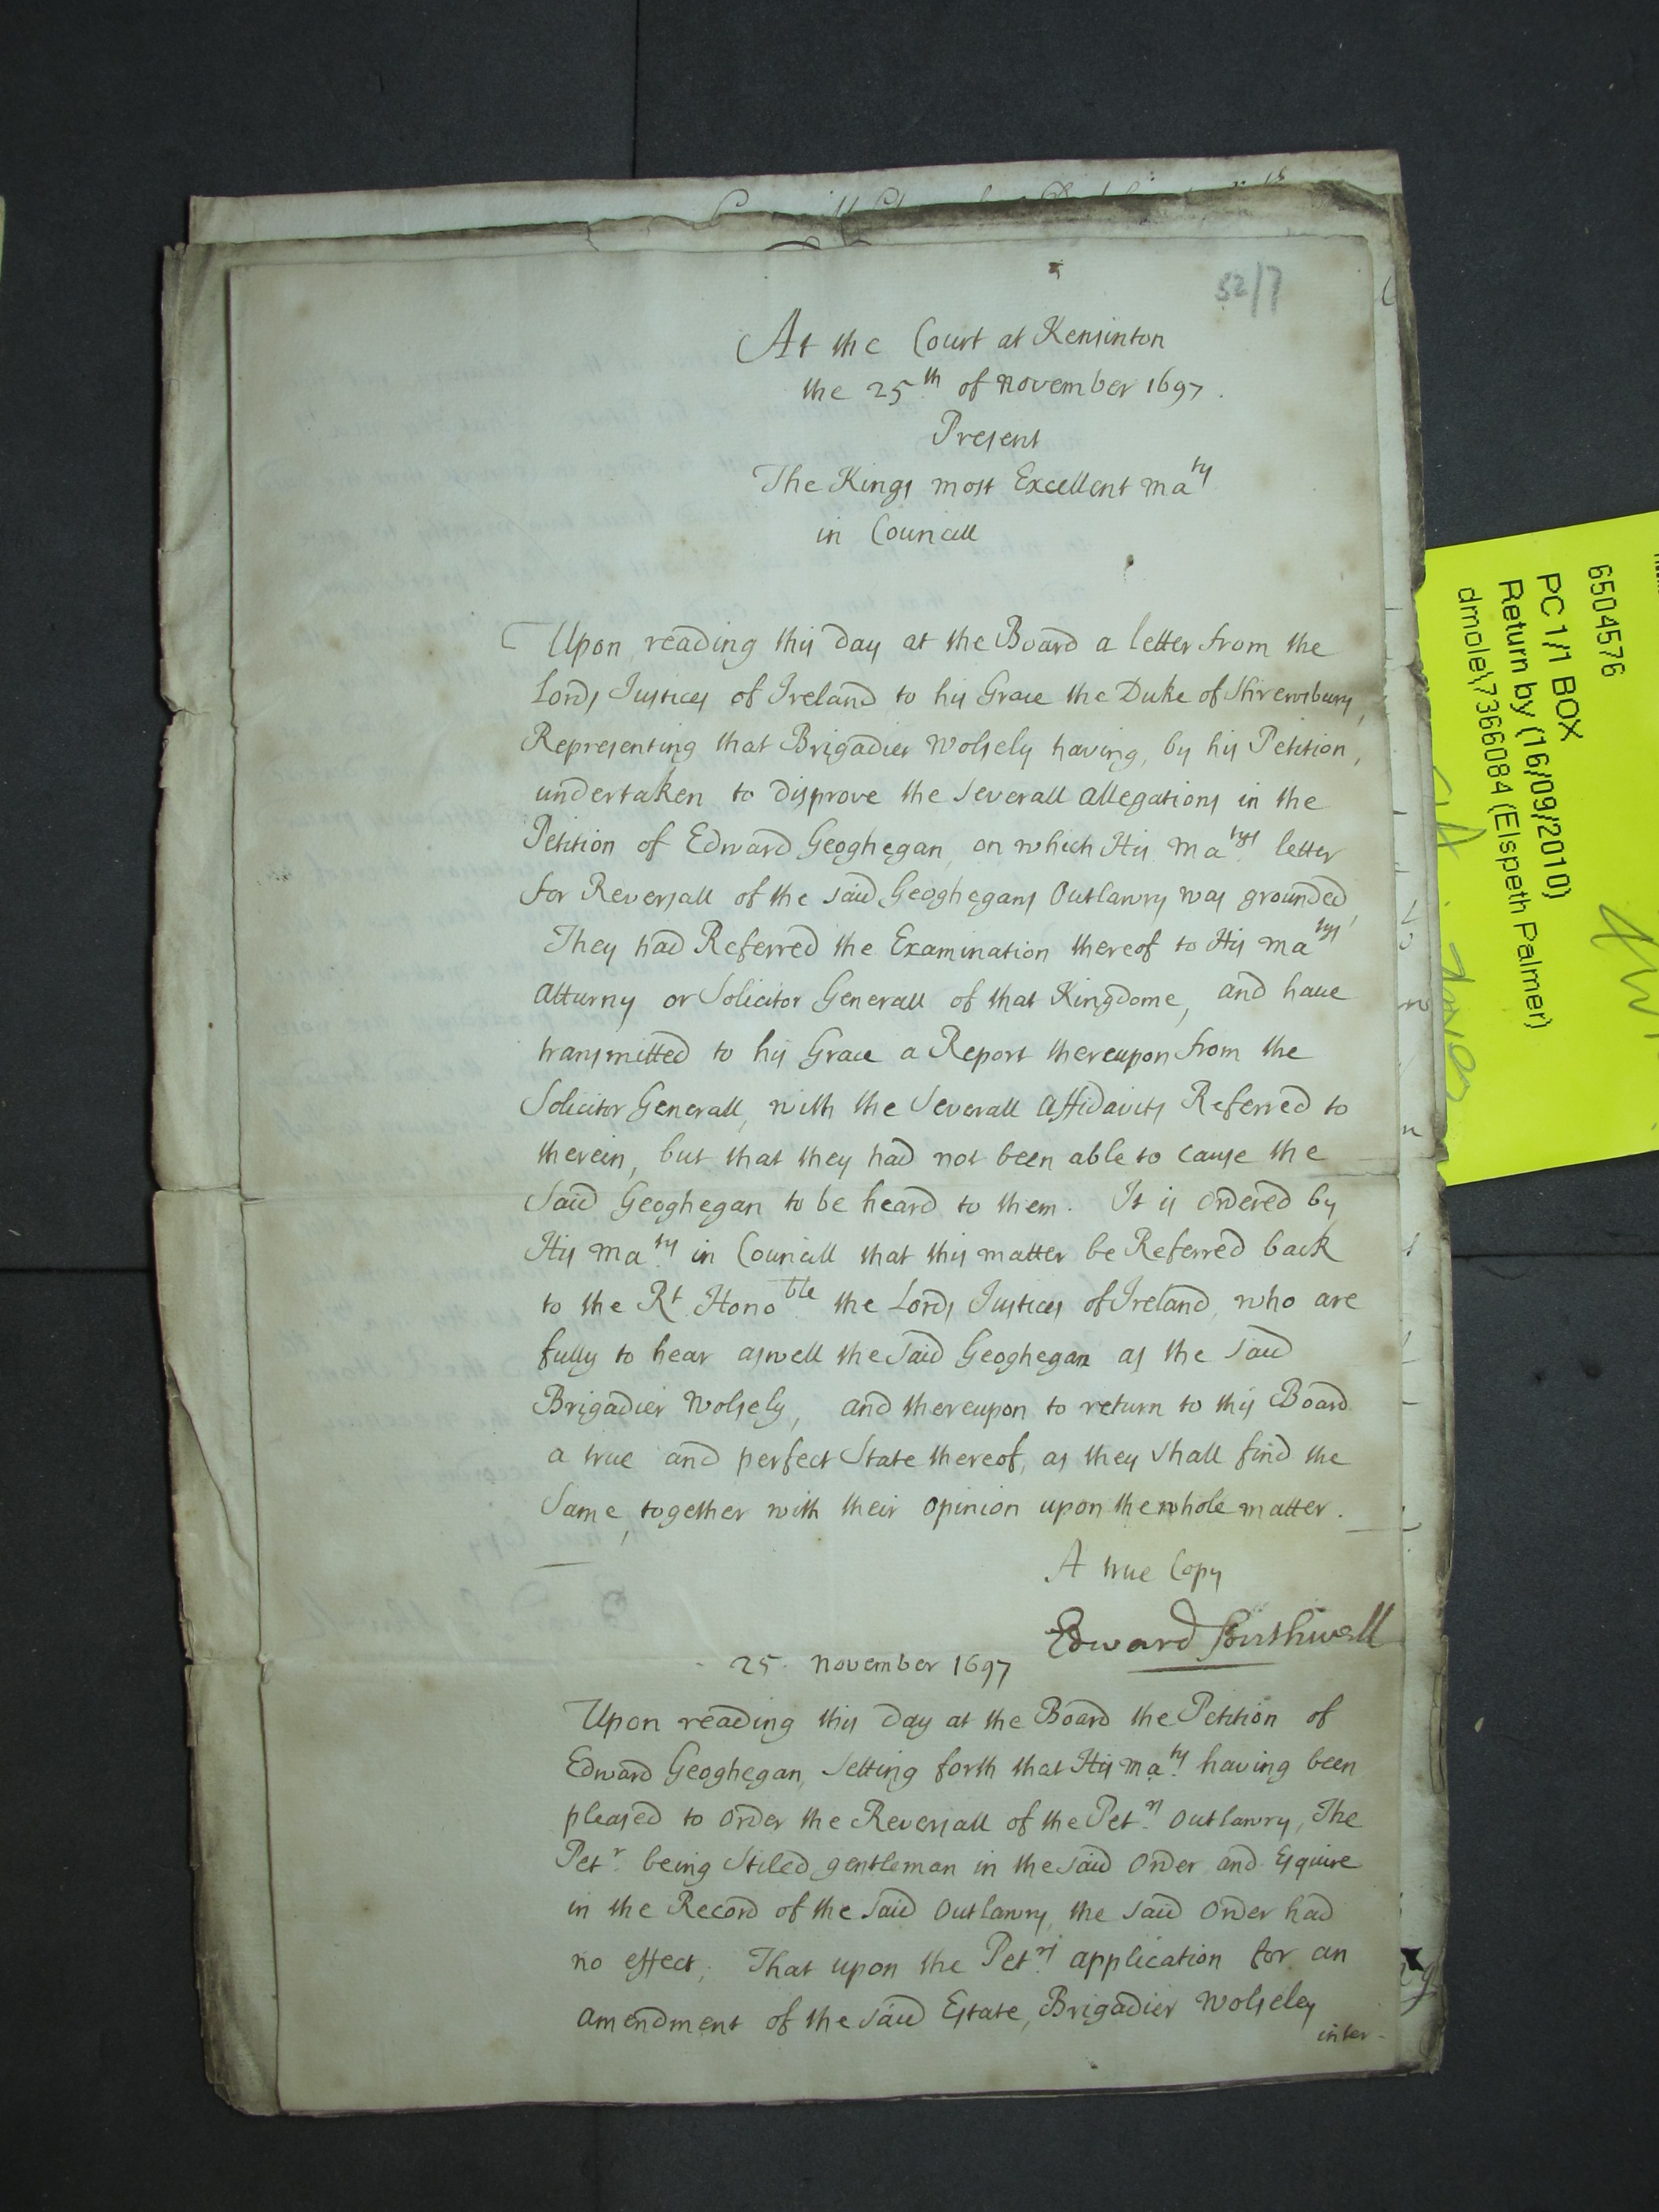 52/7
At the Court at Kensinton
the 25th of November 1697.
Present
The Kings most Excellent Maty
in Councill
Upon reading this Day at the Board a letter from the
Lords Justices of Ireland to his Grace the Duke of Shrewsbury,
Representing that Brigadier Wolsely having, by his Petition,
undertaken to Disprove the Severall Allegations in the
Petition of Edward Geoghegan, on which His Matys letter
for Reversall of the said Geoghegans Outlawry was grounded,
They had Referred the Examination thereof to His Matys
Atturny or Solicitor Generall of that Kingdome, and have
transmitted to his Grace a Report thereupon from the
Solicitor Generall, with the Severall Affidavits Referred to
therein, but that they had not been able to cause the
Said Geoghegan to be heard to them. It is Ordered by
His Maty in Councill that this matter be Referred back
to the Rt Honoble the Lords Justices of Ireland, who are
fully to hear aswell the Said Geoghegan as the said
Brigadier Wolsely, and thereupon to return to this Board
a true and perfect State thereof, as they shall find the
Same, together with their Opinion upon the whole matter.
A true Copy
Edward Southwell
25. November 1697
Upon reading this Day at the Board the Petition of
Edward Geoghegan, Setting forth that His Maty having been
pleased to Order the Reversall of the Petrs Outlawry, The
Petr being Stiled gentleman in the said Order and Esquire
in the Record of the said Outlawry, the said Order had
no effect; That upon the Petrs application for an
amendment of the said Estate, Brigadier Wolseley
inter-
6504576
PC 1/1 BOX
Return by (16/09/2010)
dmole\7366084 (Elspeth Palmer)